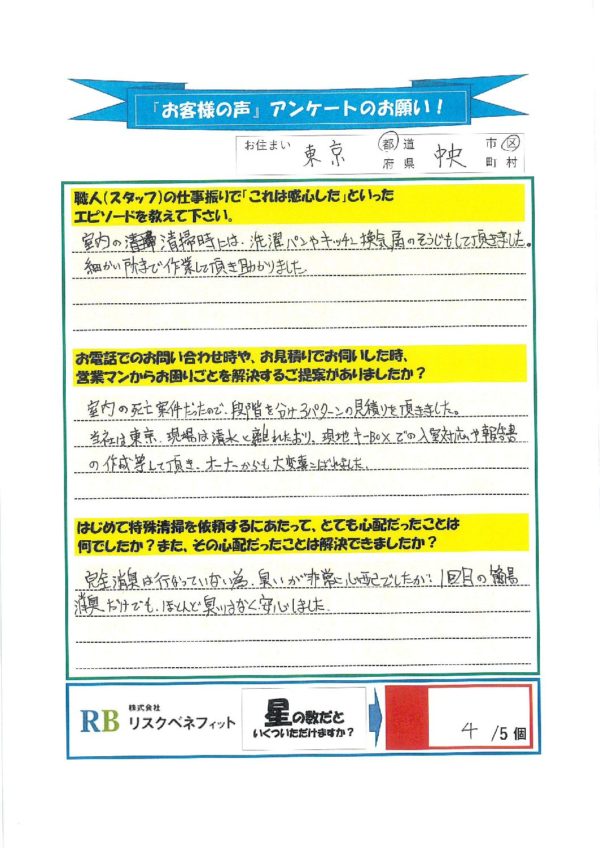 『お客様の声』アンケートのお願い！
お住まい 東京 都道府県 中央 市区町村
職人(スタッフ)の仕事振りで「これは感心した」といった
エピソードを教えて下さい。
室内の清掃時には、洗濯パンやキッチン換気扇のそうじもして頂きました。
細かい所まで作業して頂き助かりました。
お電話でのお問い合わせ時や、お見積りでお伺いした時、
営業マンからお困りごとを解決するご提案がありましたか？
室内の死亡案件だったので、段階を分け3パターンの見積りを頂きました。
当社は東京、現場は清水と離れており、現地キーBOXでの入室対応や報告書
の作成等して頂き、オーナーからも大変喜ばれました。
はじめて特殊清掃を依頼するにあたって、とても心配だったことは
何でしたか？また、その心配だったことは解決できましたか？
完全消臭は行なっていない為、臭いが非常に心配でしたが、1回目の簡易
消臭だけでも、ほとんど臭いはなく安心しました。
RB 株式会社
リスクベネフィット
星の数だと
いくついただけますか？
4 /5個